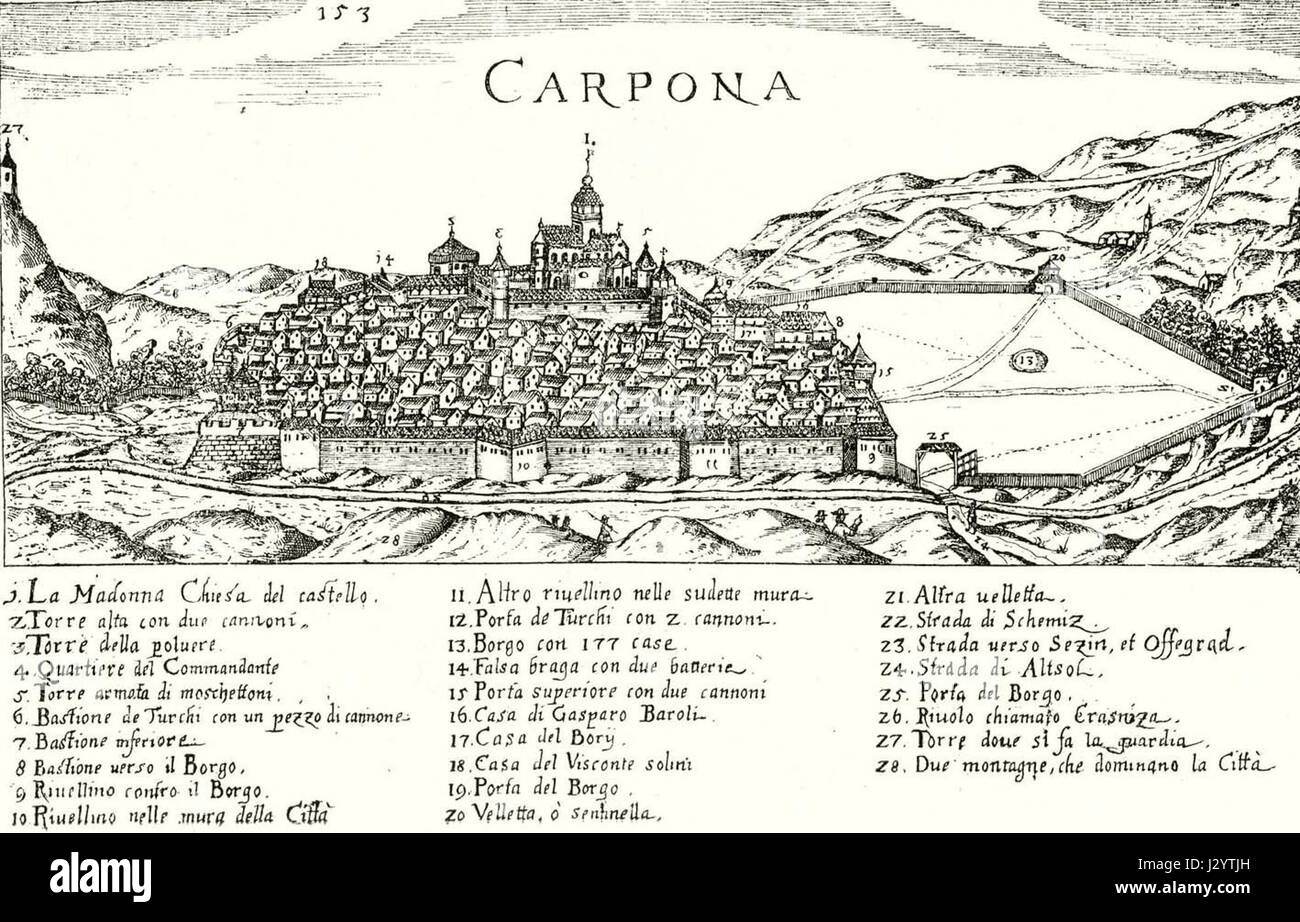 153
CARPONA
27
1.
5
2
5
4
18
14
20
28
6
8
13
15
21
25
9
10
11
28
26
28
24
1. La Madonna Chiesa del castello.
2. Torre alta con due cannoni.
3. Torre della poluere.
4. Quartiere del Commandante
5. Torre armata di moschettoni.
6. Bastione de Turchi con un pezzo di cannone
7. Bastione inferiore
8 Bastione uerso il Borgo.
9 Riuellino contro il Borgo.
10 Riuellino nelle mura della Città
11. Altro riuellino nelle sudette mura
12. Porta de Turchi con 2. cannoni.
13. Borgo con 177 case.
14. Falsa braga con due batterie.
15 Porta superiore con due cannoni
16. Casa di Gasparo Baroli.
17. Casa del Borÿ.
18. Casa del Visconte solini
19. Porta del Borgo.
20 Velletta, ò sentinella.
21. Altra uelletta.
22. Strada di Schemiz.
23. Strada uerso Sezin, et Offegrad.
24. Strada di Altsol.
25. Porta del Borgo.
26. Riuolo chiamato Crasniza.
27. Torre doue si fa la guardia.
28. Due montagne, che dominano la Città
alamy stock photo
alamy
Image ID: J2YTJH
www.alamy.com